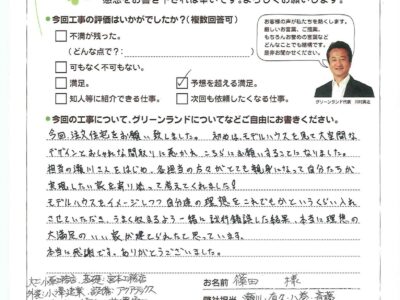 感想をお書き下されば幸いです。よろしくお願いします。
●今回工事の評価はいかがでしたか?(複数回答可)
不満が残った。
(どんな点で?: )
可もなく不可もなし。
満足。
予想を超える満足。
知人等に紹介できる仕事。
次回も依頼したくなる仕事。
お客様の声が私たちを動かします。
厳しいお言葉、ご提案、
もちろんお誉めの言葉など
どんなことでも結構です。
是非お聞かせください。
グリーンランド代表
●今回の工事について、グリーンランドについてなどご自由にお書きください。
今回、注文住宅をお願い致しました。初めは、モデルハウスを見て大空間な
デザインとおしゃれな間取りに惹かれ、こちらにお願いすることになりました。
担当の瀬川さんをはじめ、各担当の方々がとても親身になって自分たちが
実現したい家を寄り添って考えてくれました!
モデルハウスをイメージしつつ自分達の理想をこれでもかというくらい入れ
させていただき、うまく収まるよう一緒に試行錯誤した結果、本当に理想の
大満足のいい家が建てられたと思っています。
本当に感謝です。ありがとうございました。
お名前 篠田 様
弊社担当